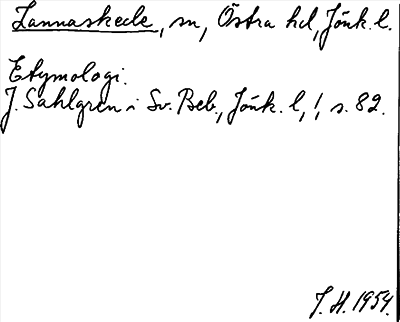 Lannaskede, sn, Östra hd, Jönk. l.
Etymologi.
J. Sahlgren i Sv. Beb., Jönk. l, 1, s. 82.
J. H. 1954.